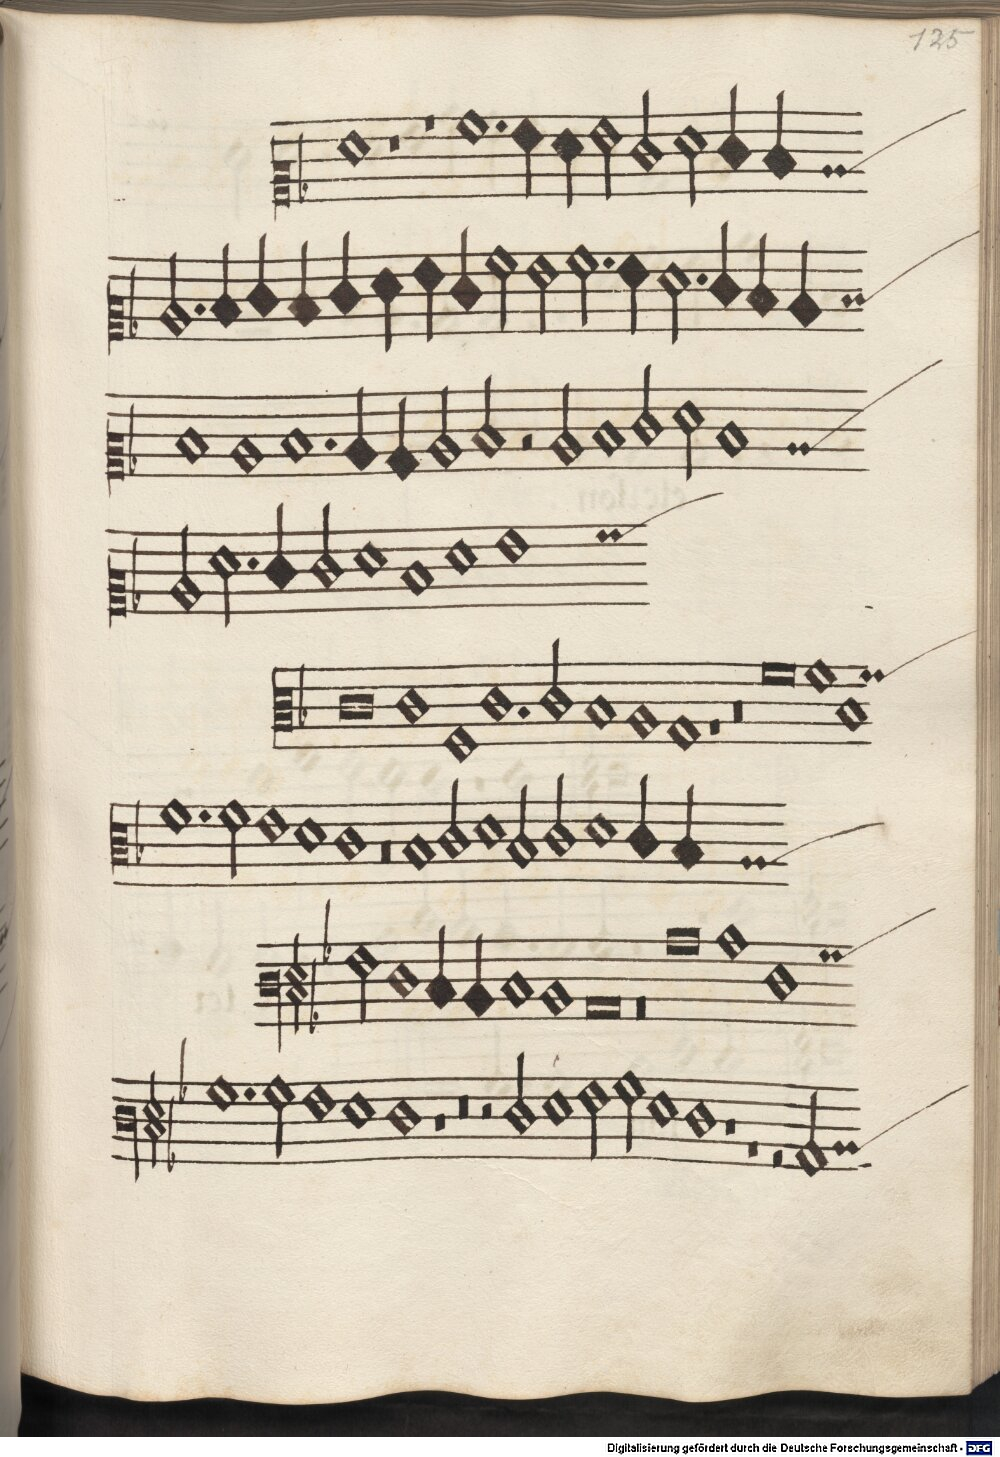 125
Digitalisierung gefördert durch die Deutsche Forschungsgemeinschaft - DFG